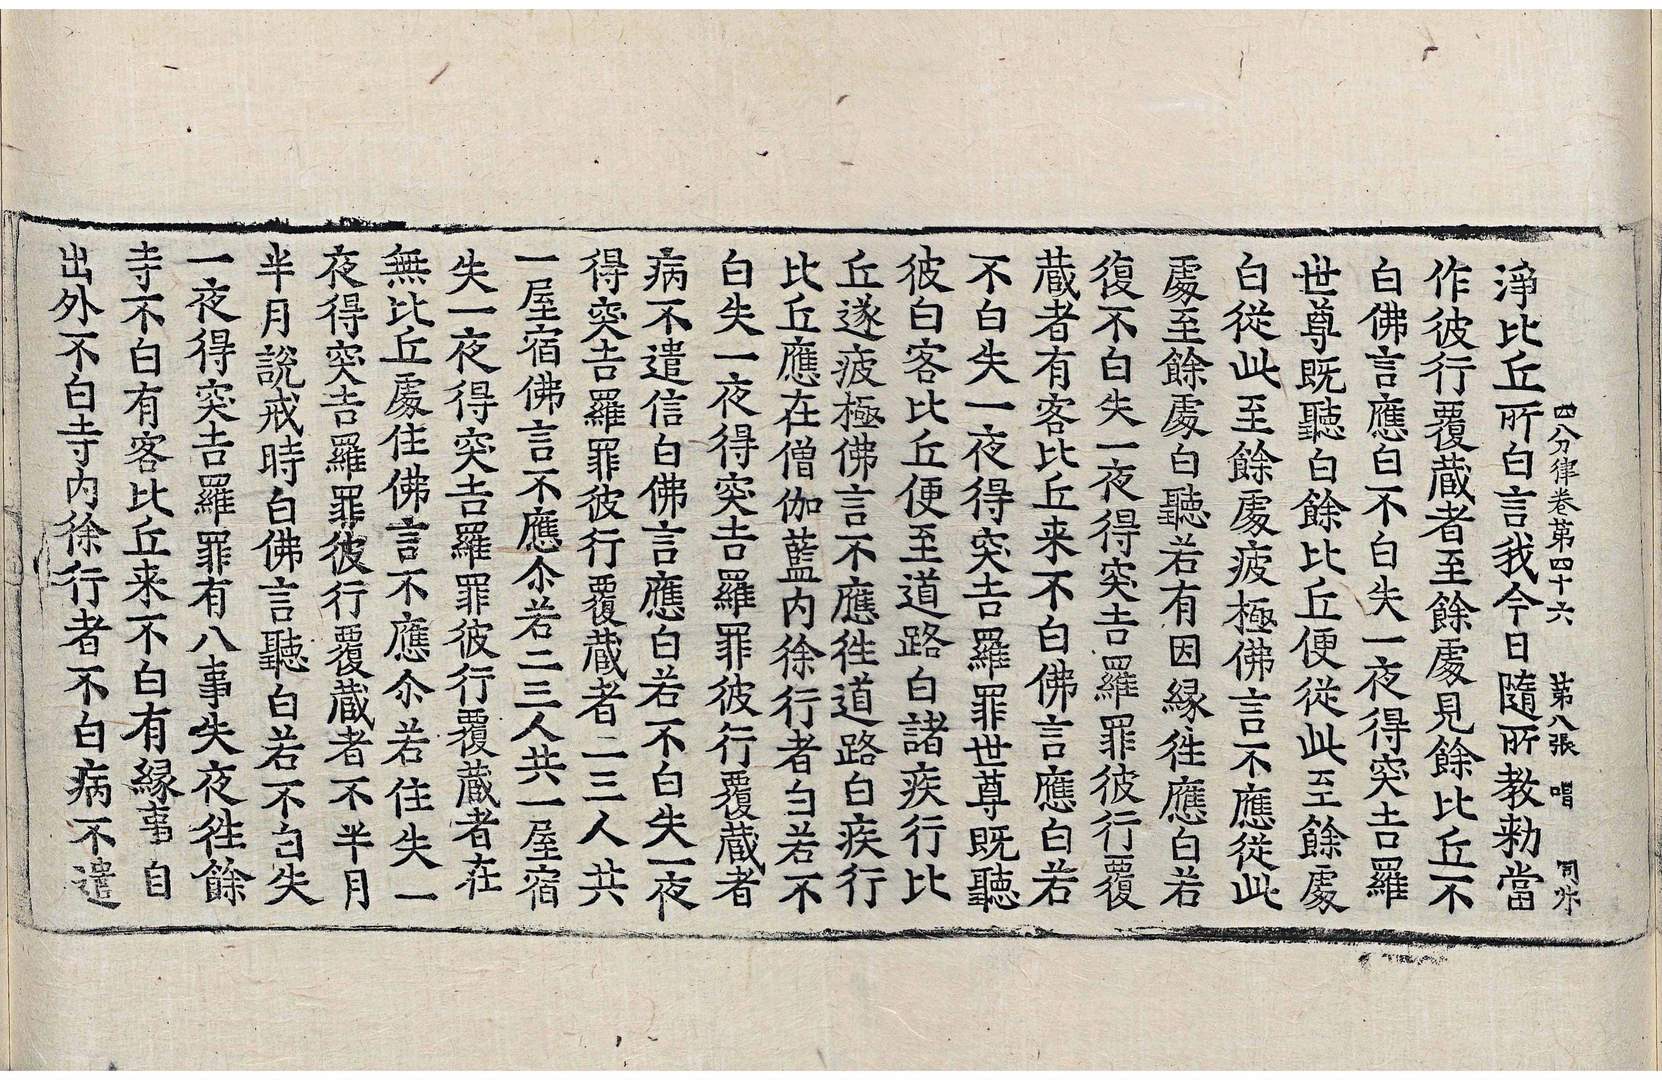 四分律卷第四十六 第八張 唱
淨比丘所白言我今日隨所教勑當
作彼行覆蔵者至餘處見餘比丘不
白佛言應白不白失一夜得突吉羅
世尊旣聽白餘比丘便從此至餘處
白從此至餘處疲極佛言不應從此
處至餘處白聽若有因縁徃應白若
復不白失一夜得突吉羅罪彼行覆
蔵者有客比丘来不白佛言應白若
不白失一夜得突吉羅罪世尊旣聽
彼白客比丘便至道路白諸疾行比
丘遂疲極佛言不應徃道路白疾行
比丘應在僧伽藍内徐行者白若不
白失一夜得突吉羅罪彼行覆蔵者
病不遣信白佛言應白若不白失一夜
得突吉羅罪彼行覆蔵者二三人共
一屋宿佛言不應尒若二三人共一屋宿
失一夜得突吉羅罪彼行覆蔵者在
無比丘處住佛言不應尒若住失一
夜得突吉羅罪彼行覆蔵者不半月
半月說戒時白佛言聽白若不白失
一夜得突吉羅罪有八事失夜徃餘
寺不白有客比丘来不白有縁事自
出外不白寺内徐行者不白病不遣